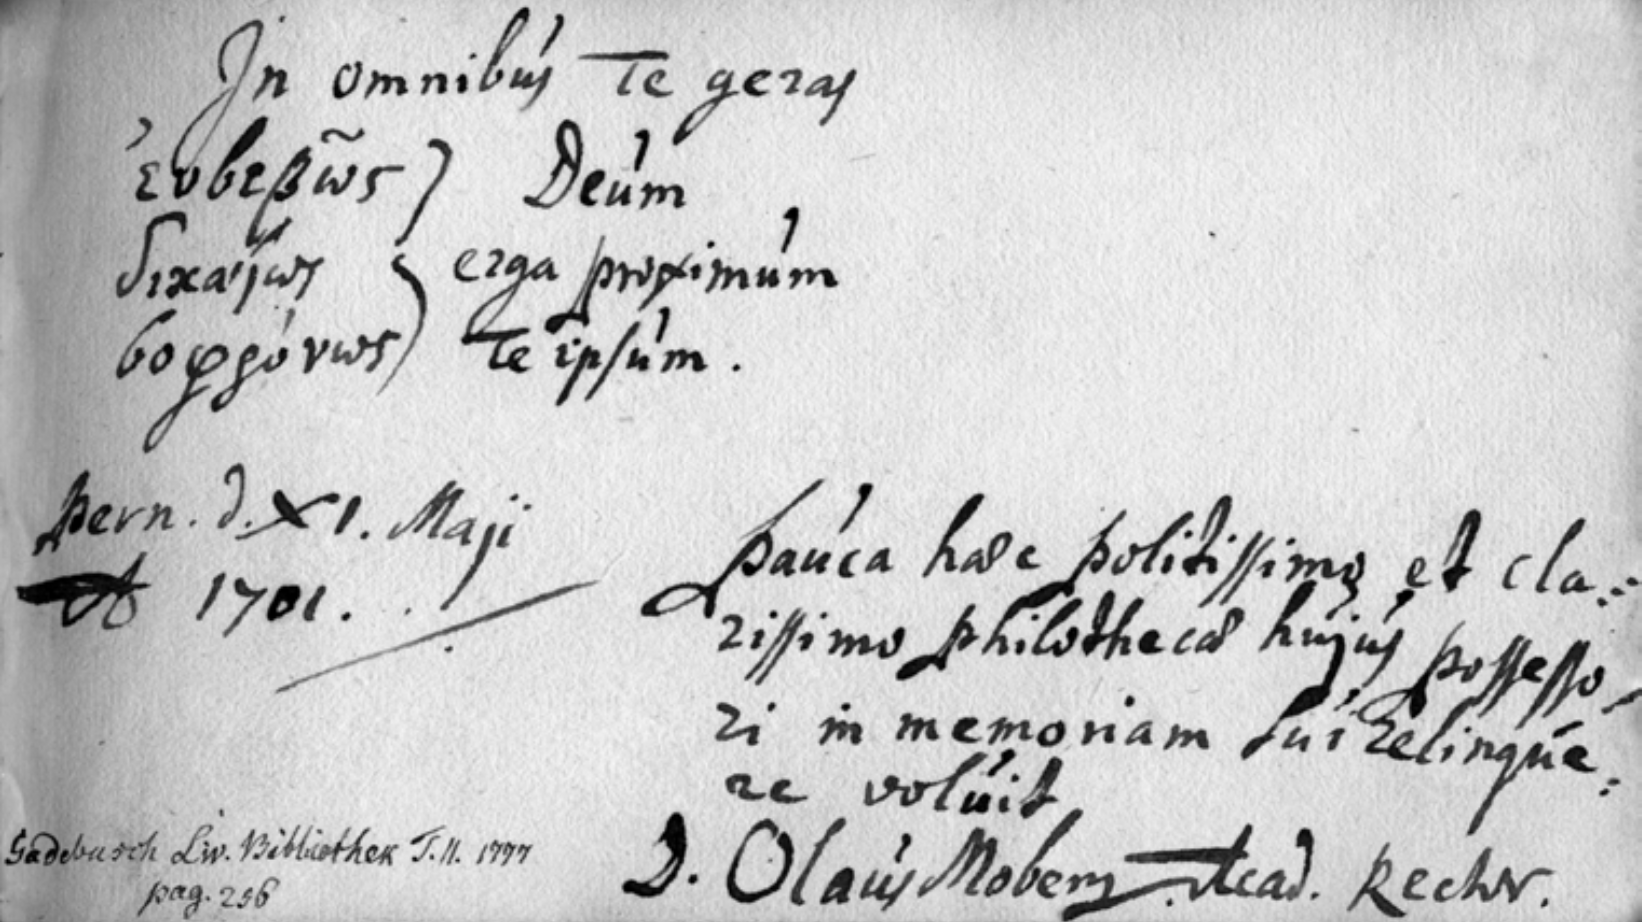 In omnibus te geras
ἐυσεβῶς } Deum
δικαίως } erga proximum
σοφρόνως } te ipsum.
Pern. d. XI. Maji
1701.
Pauca haec politissimo et cla-
rissimo philothecae hujus possesso-
ri in memoriam sui relinque-
re voluit
D. Olaus Moberg Acad. Rector.
Gadebusch Liv. Bibliothek T. II. 1777
pag. 256